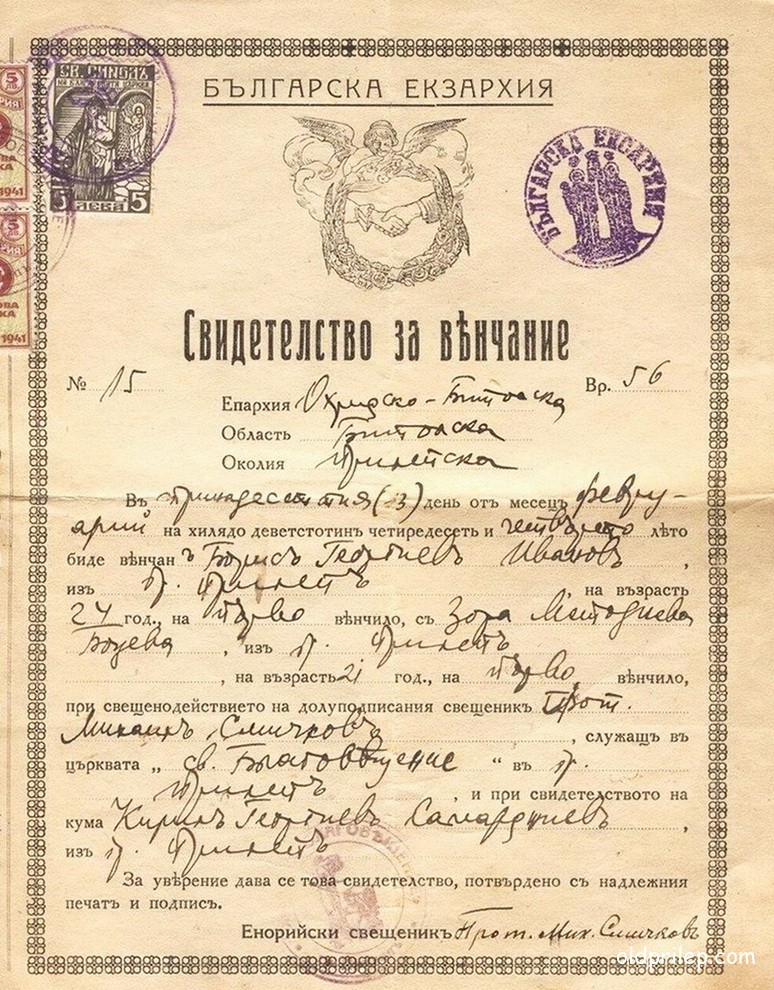 БЪЛГАРСКА ЕКЗАРХИЯ
СВ. СИНОДЪ
5 ЛЕВА 5
5 ЛВ.
1941
5 ЛВ.
1941
БЪЛГАРСКА ЕКСАРХИЯ
Свидетелство за вѣнчание
№ 15 Вр. 56
Епархия Охридско-Битолска
Область Битолска
Околия Прилепска
Въ тринадесетия (13) день отъ месецъ февру-
арий на хилядо деветстотинъ четиредесеть и четвърто лѣто
биде вѣнчан ъ Борисъ Георгиевъ Ивановъ,
изъ гр. Прилепъ на възрасть
24 год., на първо вѣнчило, съ Зора Методиева
Боцева, изъ гр. Прилепъ
, на възрасть 21 год., на първо вѣнчило,
при свещенодействието на долуподписания свещеникъ Прот.
Михаилъ Смичковъ, служащъ въ
църквата „ св. Благовѣщение “ въ гр.
Прилепъ, и при свидетелството на
кума Кирилъ Георгиевъ Самарджиевъ,
изъ гр. Прилепъ
За увѣрение дава се това свидетелство, потвърдено съ надлежния
печатъ и подписъ.
Енорийски свещеникъ Прот. Мих. Смичковъ
oldprilep.com